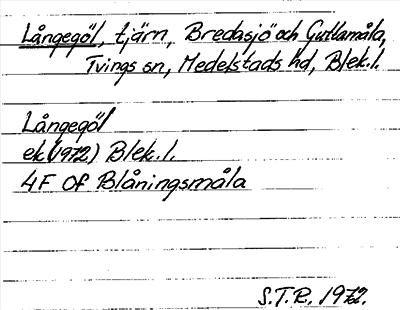 Långegöl, tjärn, Bredasjö och Gullamåla,
Tvings sn, Medelstads hd, Blek.l.
Långegöl
ek (1972) Blek.l.
4F Of Blåningsmåla
S.T.R. 1972.